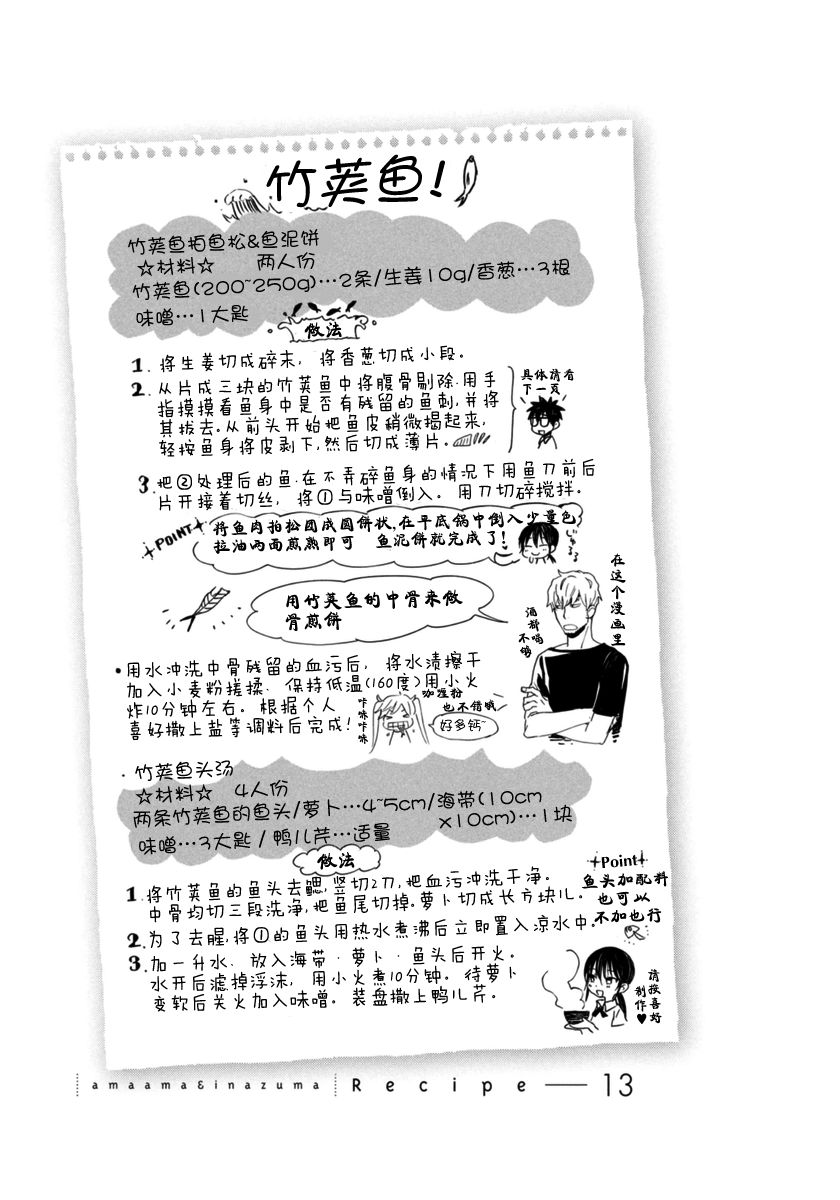 竹荚鱼!
竹荚鱼拍鱼松&鱼泥饼
☆材料☆ 两人份
竹荚鱼(200~250g)…2条/生姜10g/香葱…3根
味噌…1大匙
做法
1. 将生姜切成碎末, 将香葱切成小段。
2. 从片成三块的竹荚鱼中将腹骨剔除.用手
指摸摸看鱼身中是否有残留的鱼刺,并将
其拔去.从前头开始把鱼皮稍微揭起来,
轻按鱼身将皮剥下,然后切成薄片。
具体请看
下一页
3. 把②处理后的鱼.在不弄碎鱼身的情况下用鱼刀前后
片开接着切丝, 将①与味噌倒入。用刀切碎搅拌。
POINT
将鱼肉拍松团成圆饼状,在平底锅中倒入少量色
拉油两面煎熟即可 鱼泥饼就完成了!
用竹荚鱼的中骨来做
骨煎饼
在这个漫画里
酒都喝
不够
•用水冲洗中骨残留的血污后, 将水渍擦干
加入小麦粉搓揉. 保持低温(160度)用小火
炸10分钟左右。根据个人
喜好撒上盐等调料后完成!
咖哩粉
也不错哦
咔咻咔咻
好多钙~
·竹荚鱼头汤
☆材料☆ 4人份
两条竹荚鱼的鱼头/萝卜…4~5cm/海带(10cm
x10cm)…1块
味噌…3大匙/鸭儿芹…适量
做法
1. 将竹荚鱼的鱼头去鳃,竖切2刀,把血污冲洗干净。
中骨均切三段洗净,把鱼尾切掉.萝卜切成长方块儿.
2. 为了去腥,将①的鱼头用热水煮沸后立即置入凉水中.
3. 加一升水. 放入海带·萝卜·鱼头后开火。
水开后滤掉浮沫, 用小火煮10分钟。待萝卜
变软后关火加入味噌。装盘撒上鸭儿芹。
Point
鱼头加配料
也可以
不加也行
请按喜好
制作♥
amaama&inazuma Recipe — 13